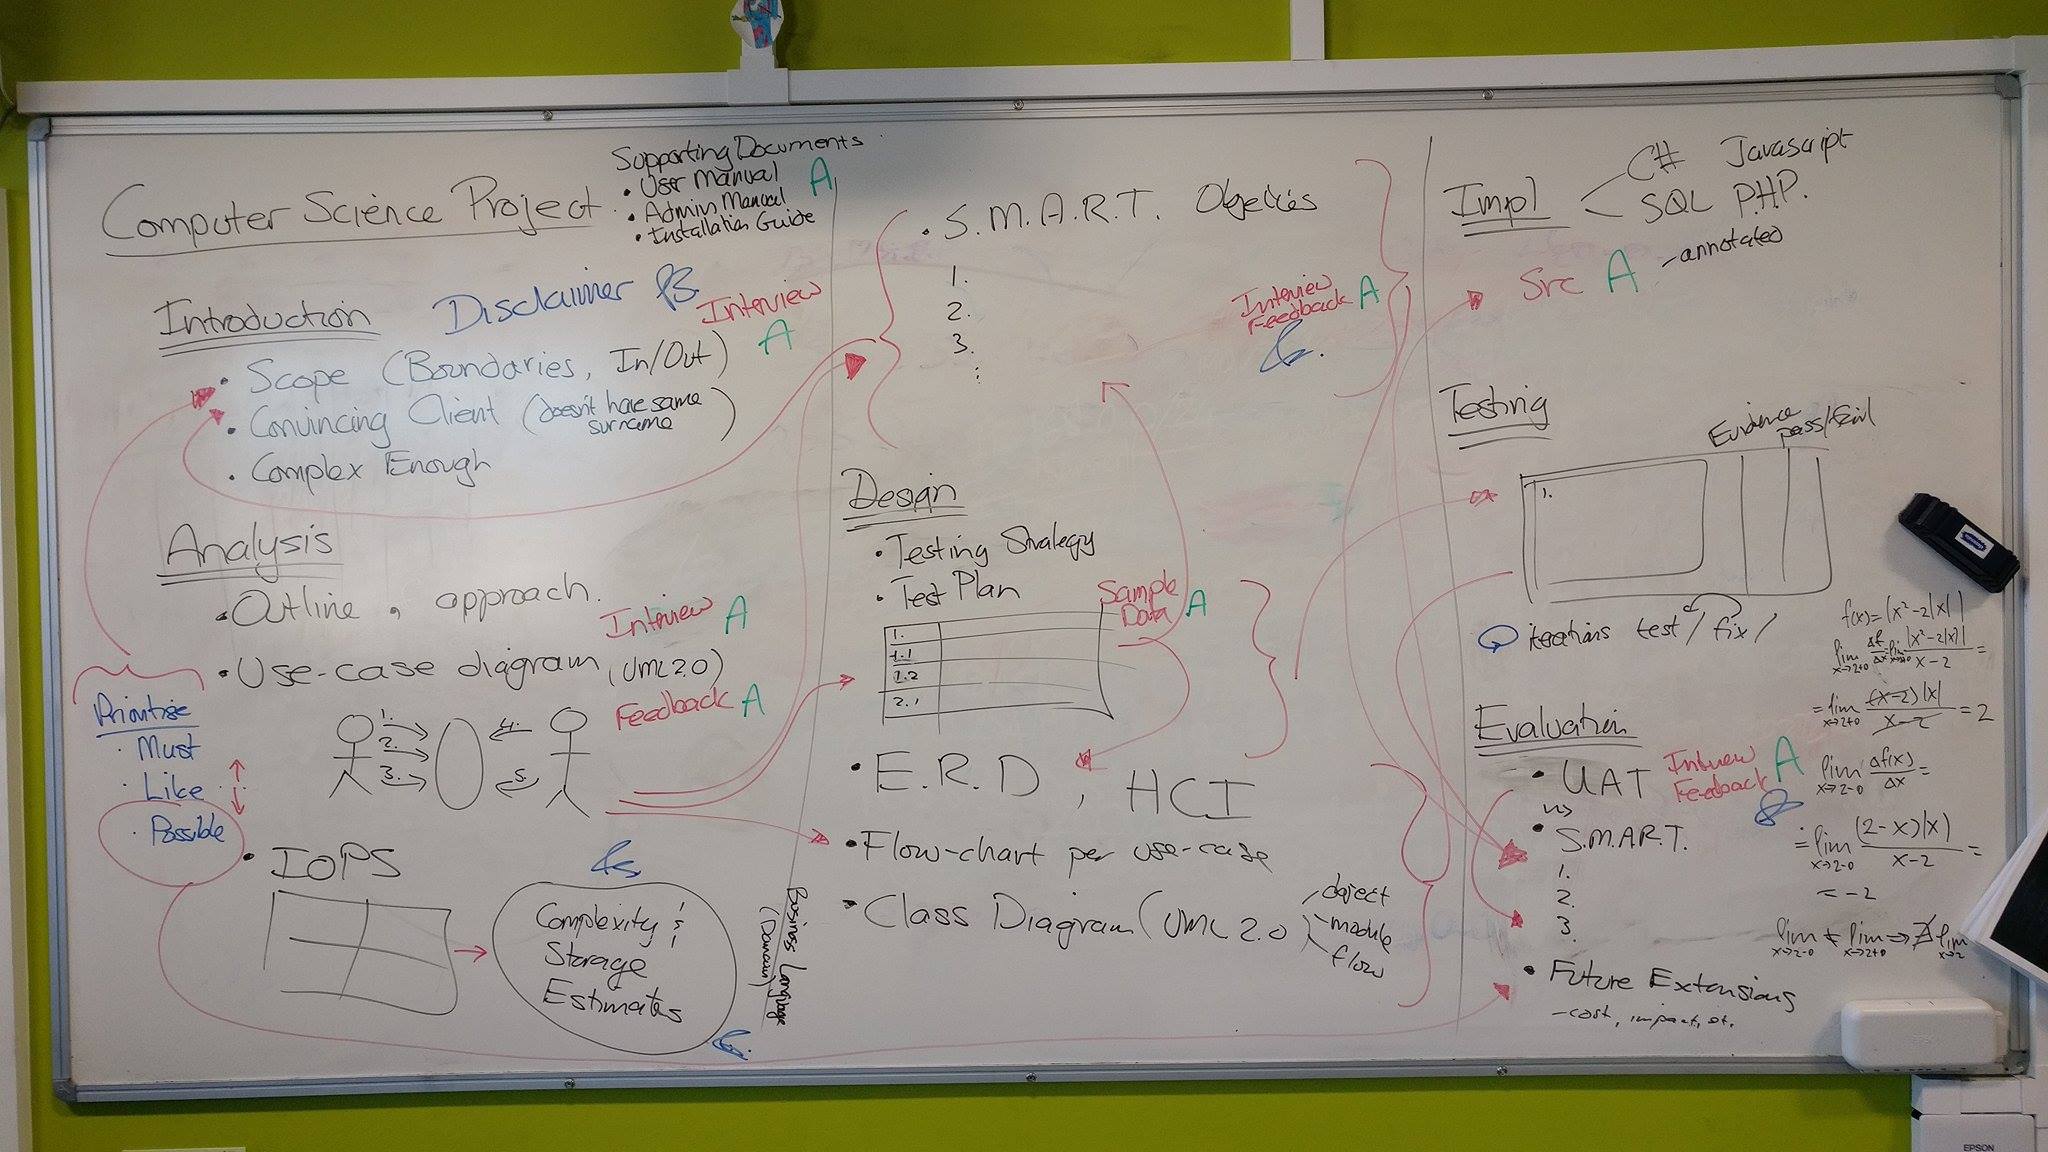 Computer Science Project
Supporting Documents
• User Manual
• Admin Manual
• Installation Guide
A
Introduction
Disclaimer
Interview
A
• Scope (Boundaries, In/Out)
• Convincing Client (doesn't have same
surname)
• Complex Enough
Analysis
• Outline, approach.
Interview A
• Use-case diagram (UML 2.0)
Feedback A
Prioritise
• Must
• Like
• Possible
1.
2.
3.
4.
5.
• IOPS
Complexity &
Storage
Estimates
Business Language
(Domain)
• S.M.A.R.T. Objectives
1.
2.
3.
Interview
Feedback A
Design
• Testing Strategy
• Test Plan
Sample
Data A
1.
1.1
1.2
2.1
• E.R.D, HCI
• Flow-chart per use-case
• Class Diagram (UML 2.0)
object
module
flow
Impl
C# Javascript
SQL P.H.P.
Src A - annotated
Testing
Evidence
pass/fail
1.
iterations test/fix/
Evaluation
• UAT
Interview
Feedback
A
vs
• S.M.A.R.T.
1.
2.
3.
• Future Extensions
- cost, impact, et.
f(x)=|x²-2|x||
lim x→2+0 Δf/Δx = lim x→2+0 |x²-2|x||/x-2 =
= lim x→2+0 (x-2)|x|/x-2 = 2
lim x→2-0 Δf(x)/Δx =
= lim x→2-0 (2-x)|x|/x-2 =
= -2
lim x→2-0 ≠ lim x→2+0 ⇒ ∄ lim x→2
EPSON